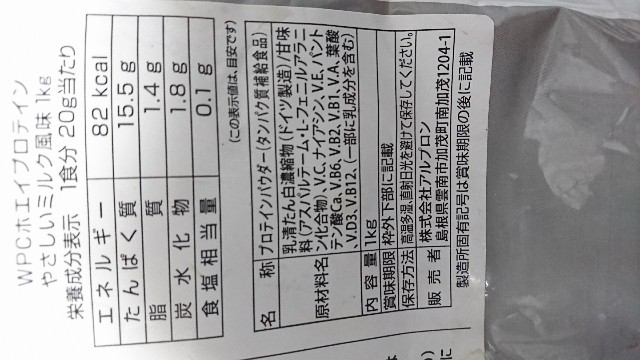 WPCホエイプロテイン
やさしいミルク風味 1kg
栄養成分表示 1食分 20g当たり
エネルギー 82 kcal
たんぱく質 15.5 g
脂質 1.4 g
炭水化物 1.8 g
食塩相当量 0.1 g
(この表示値は、目安です)
名称 プロテインパウダー(タンパク質補給食品)
原材料名 乳清たん白濃縮物(ドイツ製造)/甘味
料(アスパルテーム・L-フェニルアラニ
ン化合物)、V.C、ナイアシン、V.E、パント
テン酸Ca、V.B6、V.B2、V.B1、V.A、葉酸
、V.D3、V.B12、(一部に乳成分を含む)
内容量 1kg
賞味期限 枠外下部に記載
保存方法 高温多湿、直射日光を避けて保存してください。
販売者 株式会社アルプロン
島根県雲南市加茂町南加茂1204-1
製造所固有記号は賞味期限の後に記載